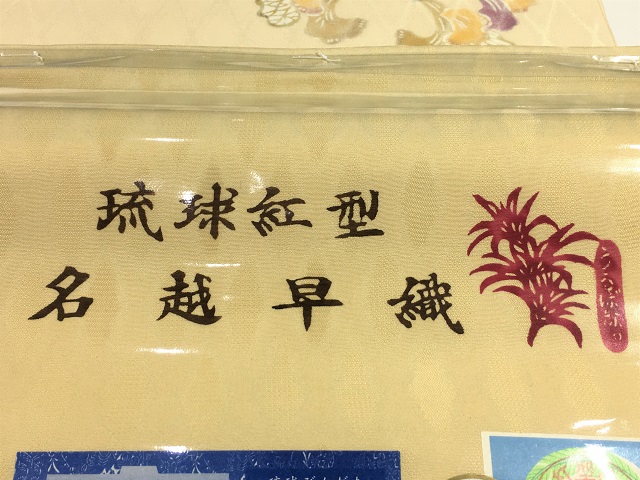 琉球紅型
名越早織